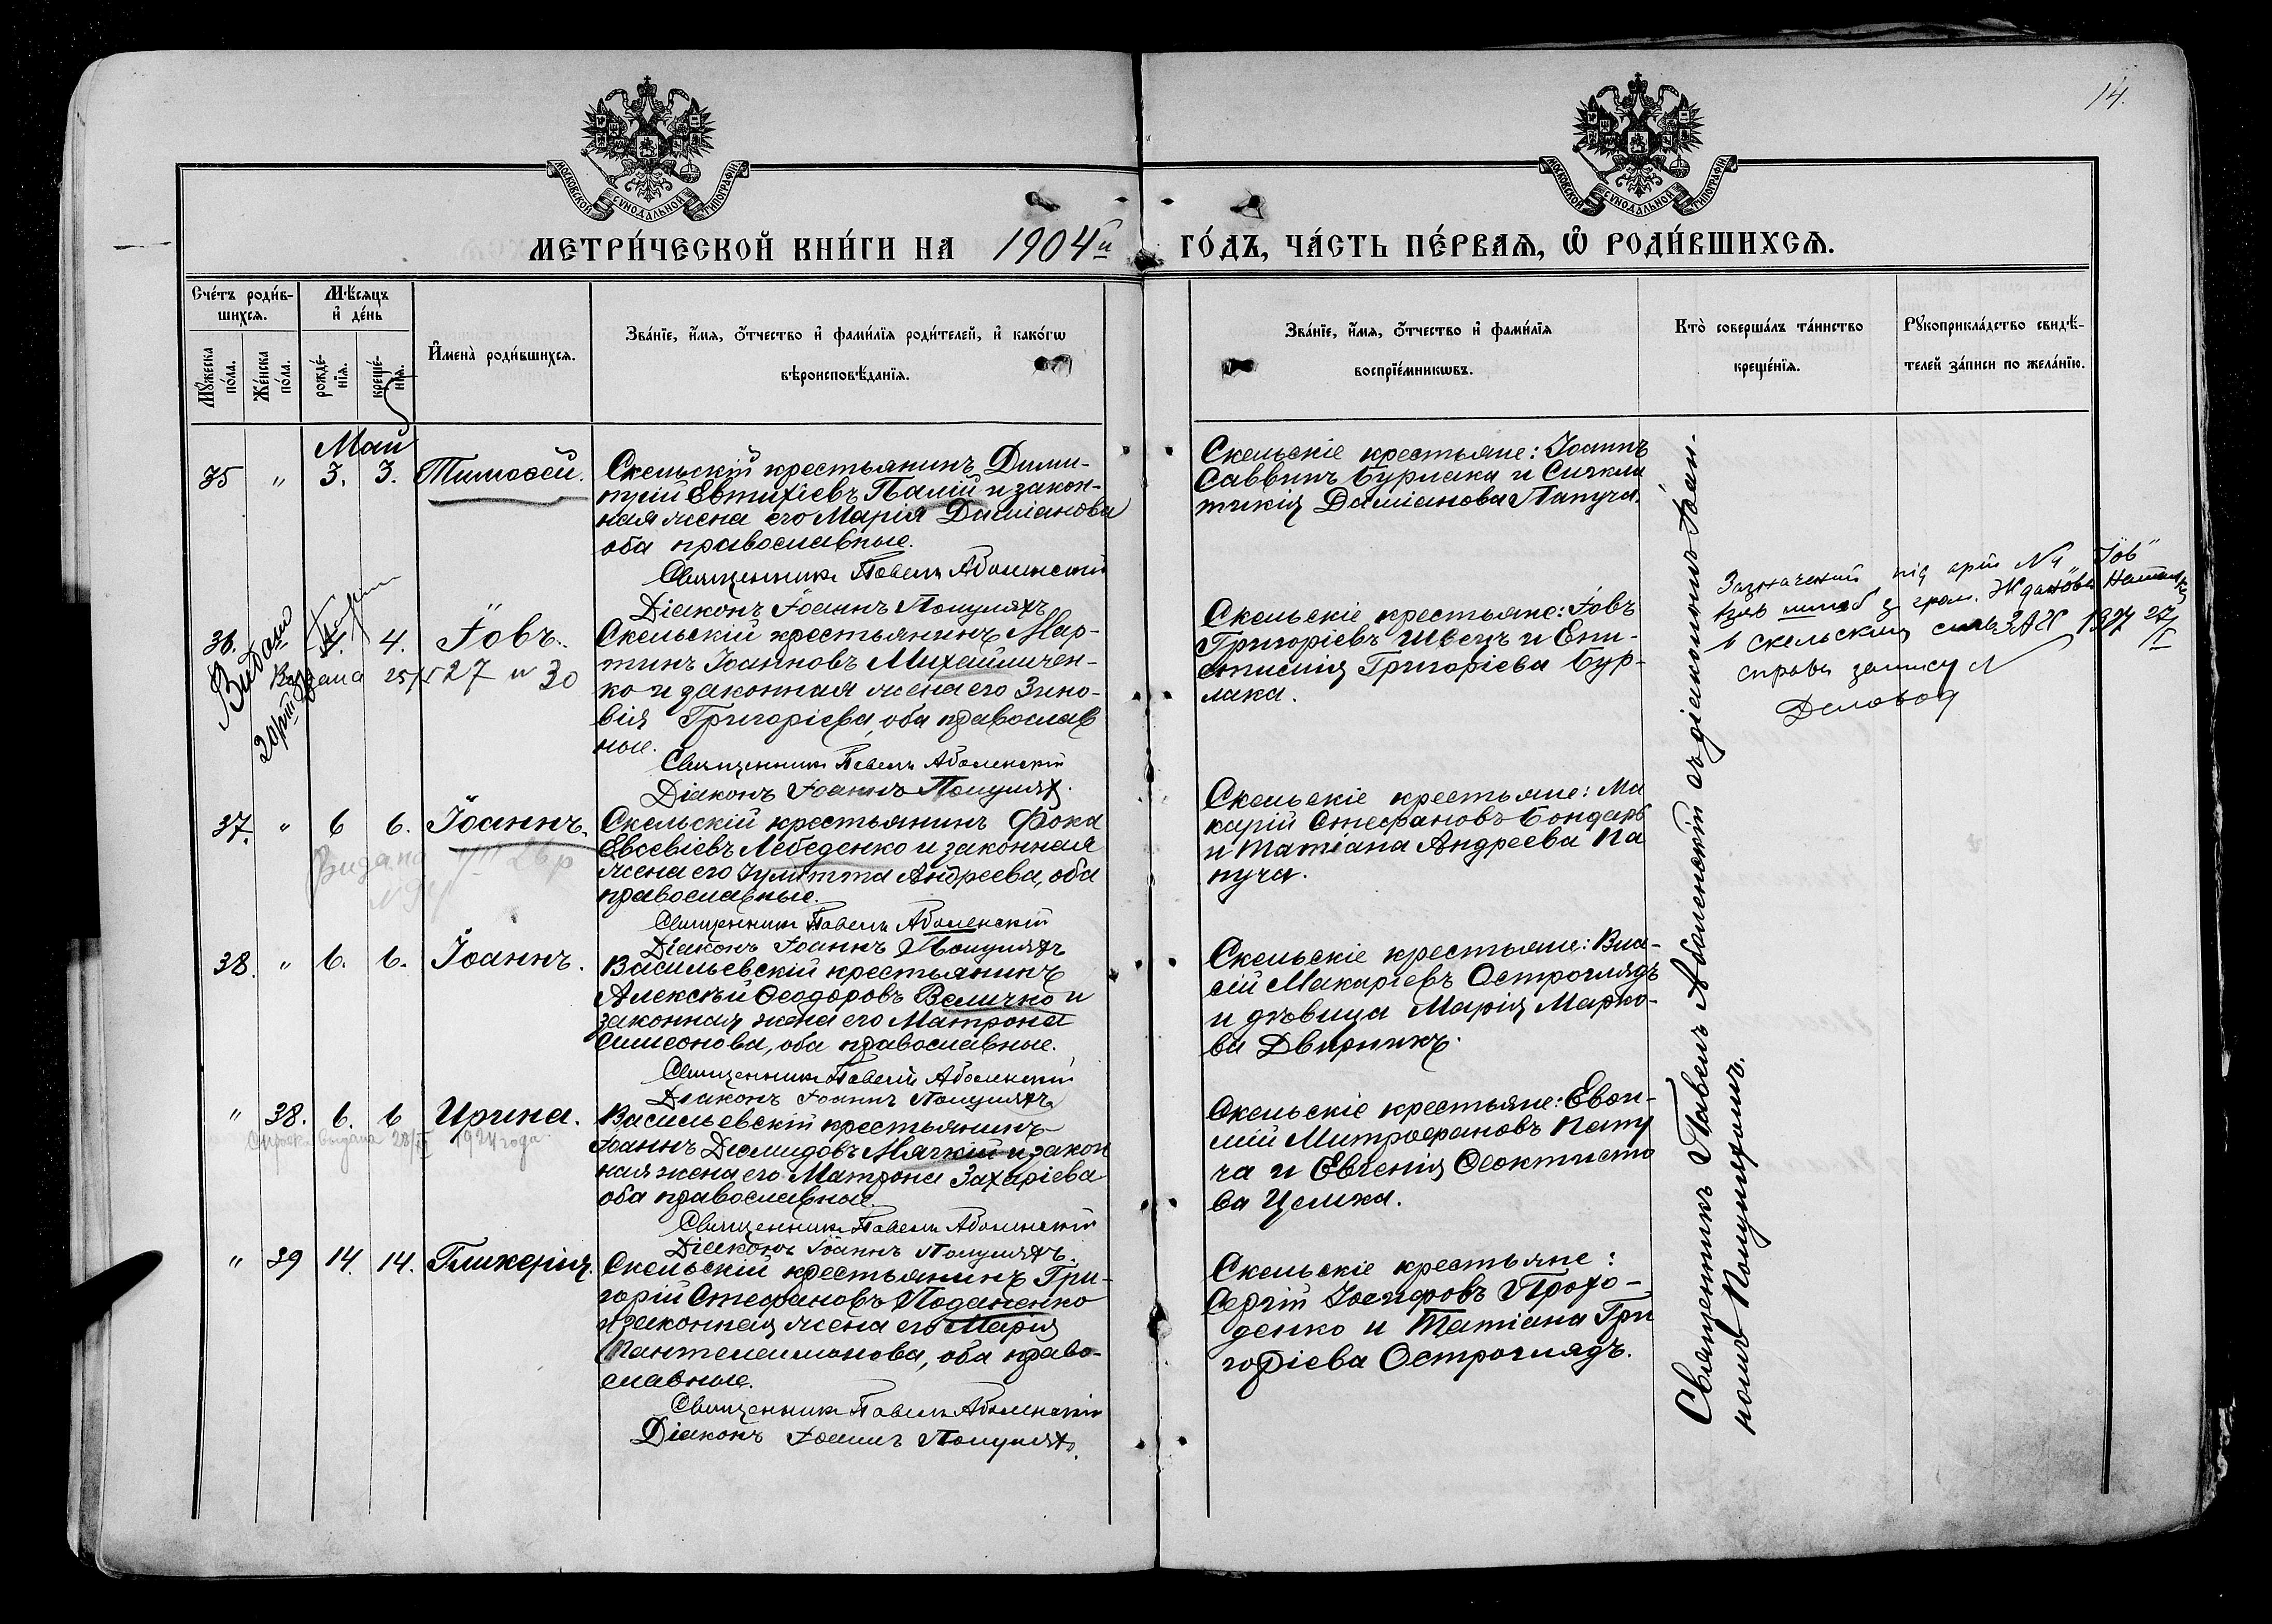 14.
МОСКОВСКОЙ СѴНОДАЛЬНОЙ ТИПОГРАФІИ
МОСКОВСКОЙ СѴНОДАЛЬНОЙ ТИПОГРАФІИ
МЕТРИ́ЧЕСКОЙ КНИ́ГИ НА 1904й ГО́ДЪ, ЧА́СТЬ ПЕ́РВАѦ, Ѡ҆ РОДИ́ВШИХСѦ.
Счéтъ роди́в-
шихсѧ.
Мꙋ́жеска по́ла.
Же́нска по́ла.
Мѣ́сѧцъ и҆ де́нь
рожде́-
нїѧ.
креще́-
нїѧ.
И҆мена̀ роди́вшихсѧ.
Зва́нїе, и҆́мѧ, ѻ҆́тчество и҆ фами́лїѧ роди́телей, и҆ како́гѡ
вѣроисповѣ́данїѧ.
Зва́нїе, и҆́мѧ, ѻ҆́тчество и҆ фами́лїѧ
воспрїе́мникѡвъ.
Кто̀ соверша́лъ та́инство
креще́нїѧ.
Рꙋкоприкла́дство свидѣ́-
телей за́писи по жела́нїю.
Май
35 " 3. 3. Тимоѳей.
Скельскій крестьянинъ Дими-
трій Евтихіевъ Палій и закон-
ная жена его Марія Даміанова
оба православные.
Священникъ Павелъ Аболенскій
Діаконъ Іоаннъ Популяхъ
Скельскіе крестьяне: Іоаннъ
Саввинъ Бурлака и Синкли
тикія Даміанова Папуча.
36. 4. 4. Іовъ.
Видано
Видана 25/I 27 и 30
Скельскій крестьянинъ Мар-
тинъ Іоанновъ Михайличен-
ко и законная жена его Зино-
вія Григоріева, оба православ
ные.
Священникъ Павелъ Аболенскій
Діаконъ Іоаннъ Популях.
Скельскіе крестьяне: Іовъ
Григоріевъ Швецъ и Епи-
стимія Григоріева Бур-
лака.
Зазначений під № 4 "Іов"
взяв шлюб з гром. Ждановой
в Скельским ЗАГС 1927 27/I
справа запису №
Діловод
37. " 6 6. Іоаннъ.
Видана
Скельскій крестьянинъ Фока
Евсевіевъ Лебеденко и законная
жена его Іулитта Андреева, оба
православные.
Священникъ Павелъ Аболенскій
Діаконъ Іоаннъ Популяхъ
Скельскіе крестьяне: Ма
карій Стефановъ Бондарь
и Татіана Андреева Па
пуча.
38. " 6. 6. Іоаннъ.
Васильевскій крестьянинъ
Алексѣй Ѳеодоровъ Величко и
законная жена его Матрона
Симеонова, оба православные.
Священникъ Павелъ Аболенскій
Діаконъ Іоаннъ Популяхъ
Скельскіе крестьяне: Вла-
сій Макаріевъ Остроглядъ
и дѣвица Марія Марко-
ва Двирникъ.
" 38. 6. 6 Ирина.
Справка выдана 28/ 1924 года
Васильевскій крестьянинъ
Іоаннъ Діомидовъ Мягкій и закон
ная жена его Матрона Захаріева
оба православные.
Священникъ Павелъ Аболенскій
Діаконъ Іоаннъ Популяхъ.
Скельскіе крестьяне: Евѳи-
мій Митрофановъ Папу
ча и Евгенія Ѳеоктисто
ва Целика.
" 39 14. 14. Гликерія.
Скельскій крестьянинъ Гри-
горій Стефановъ Поданенко
и законная жена его Марія
Пантелеимонова, оба право-
славные.
Священникъ Павелъ Аболенскій
Діаконъ Іоаннъ Популях.
Скельскіе крестьяне:
Сергій Іосифовъ Прохо-
денко и Татіана Гри
горіева Остроглядъ.
Священникъ Павелъ Аболенскій съ діакономъ Іоан-
номъ Популяхомъ.